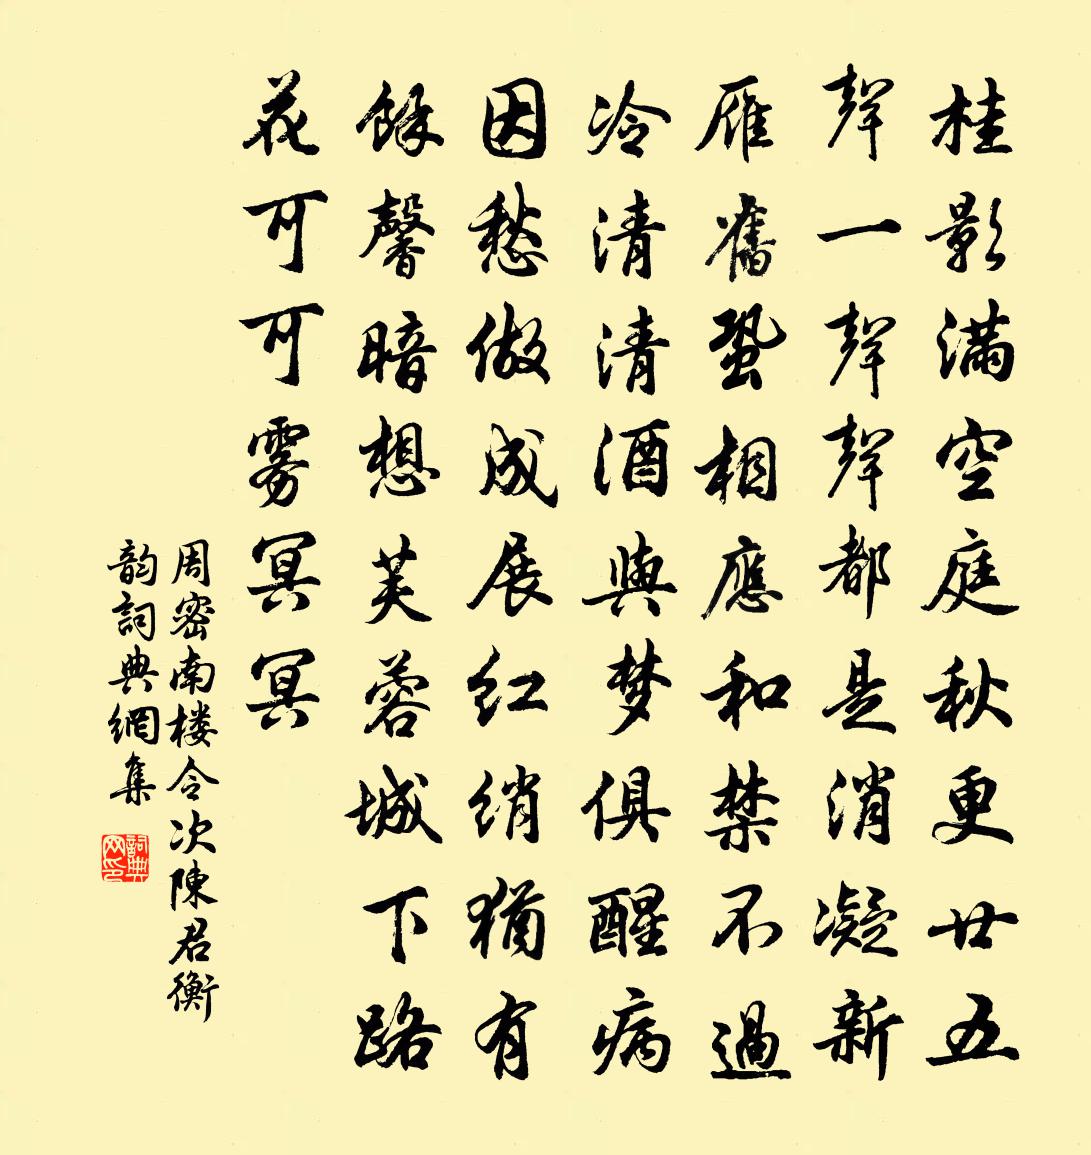 桂影满空庭秋更廿五
聲一聲聲都是消凝新
雁舊蛩相應和禁不過
冷清清酒與梦俱醒病
因愁做成展红绡猶有
餘馨暗想芙蓉城下路
花可可雾冥冥
周密南楼令次陳君衡
韵詞典網集
詞典
网印